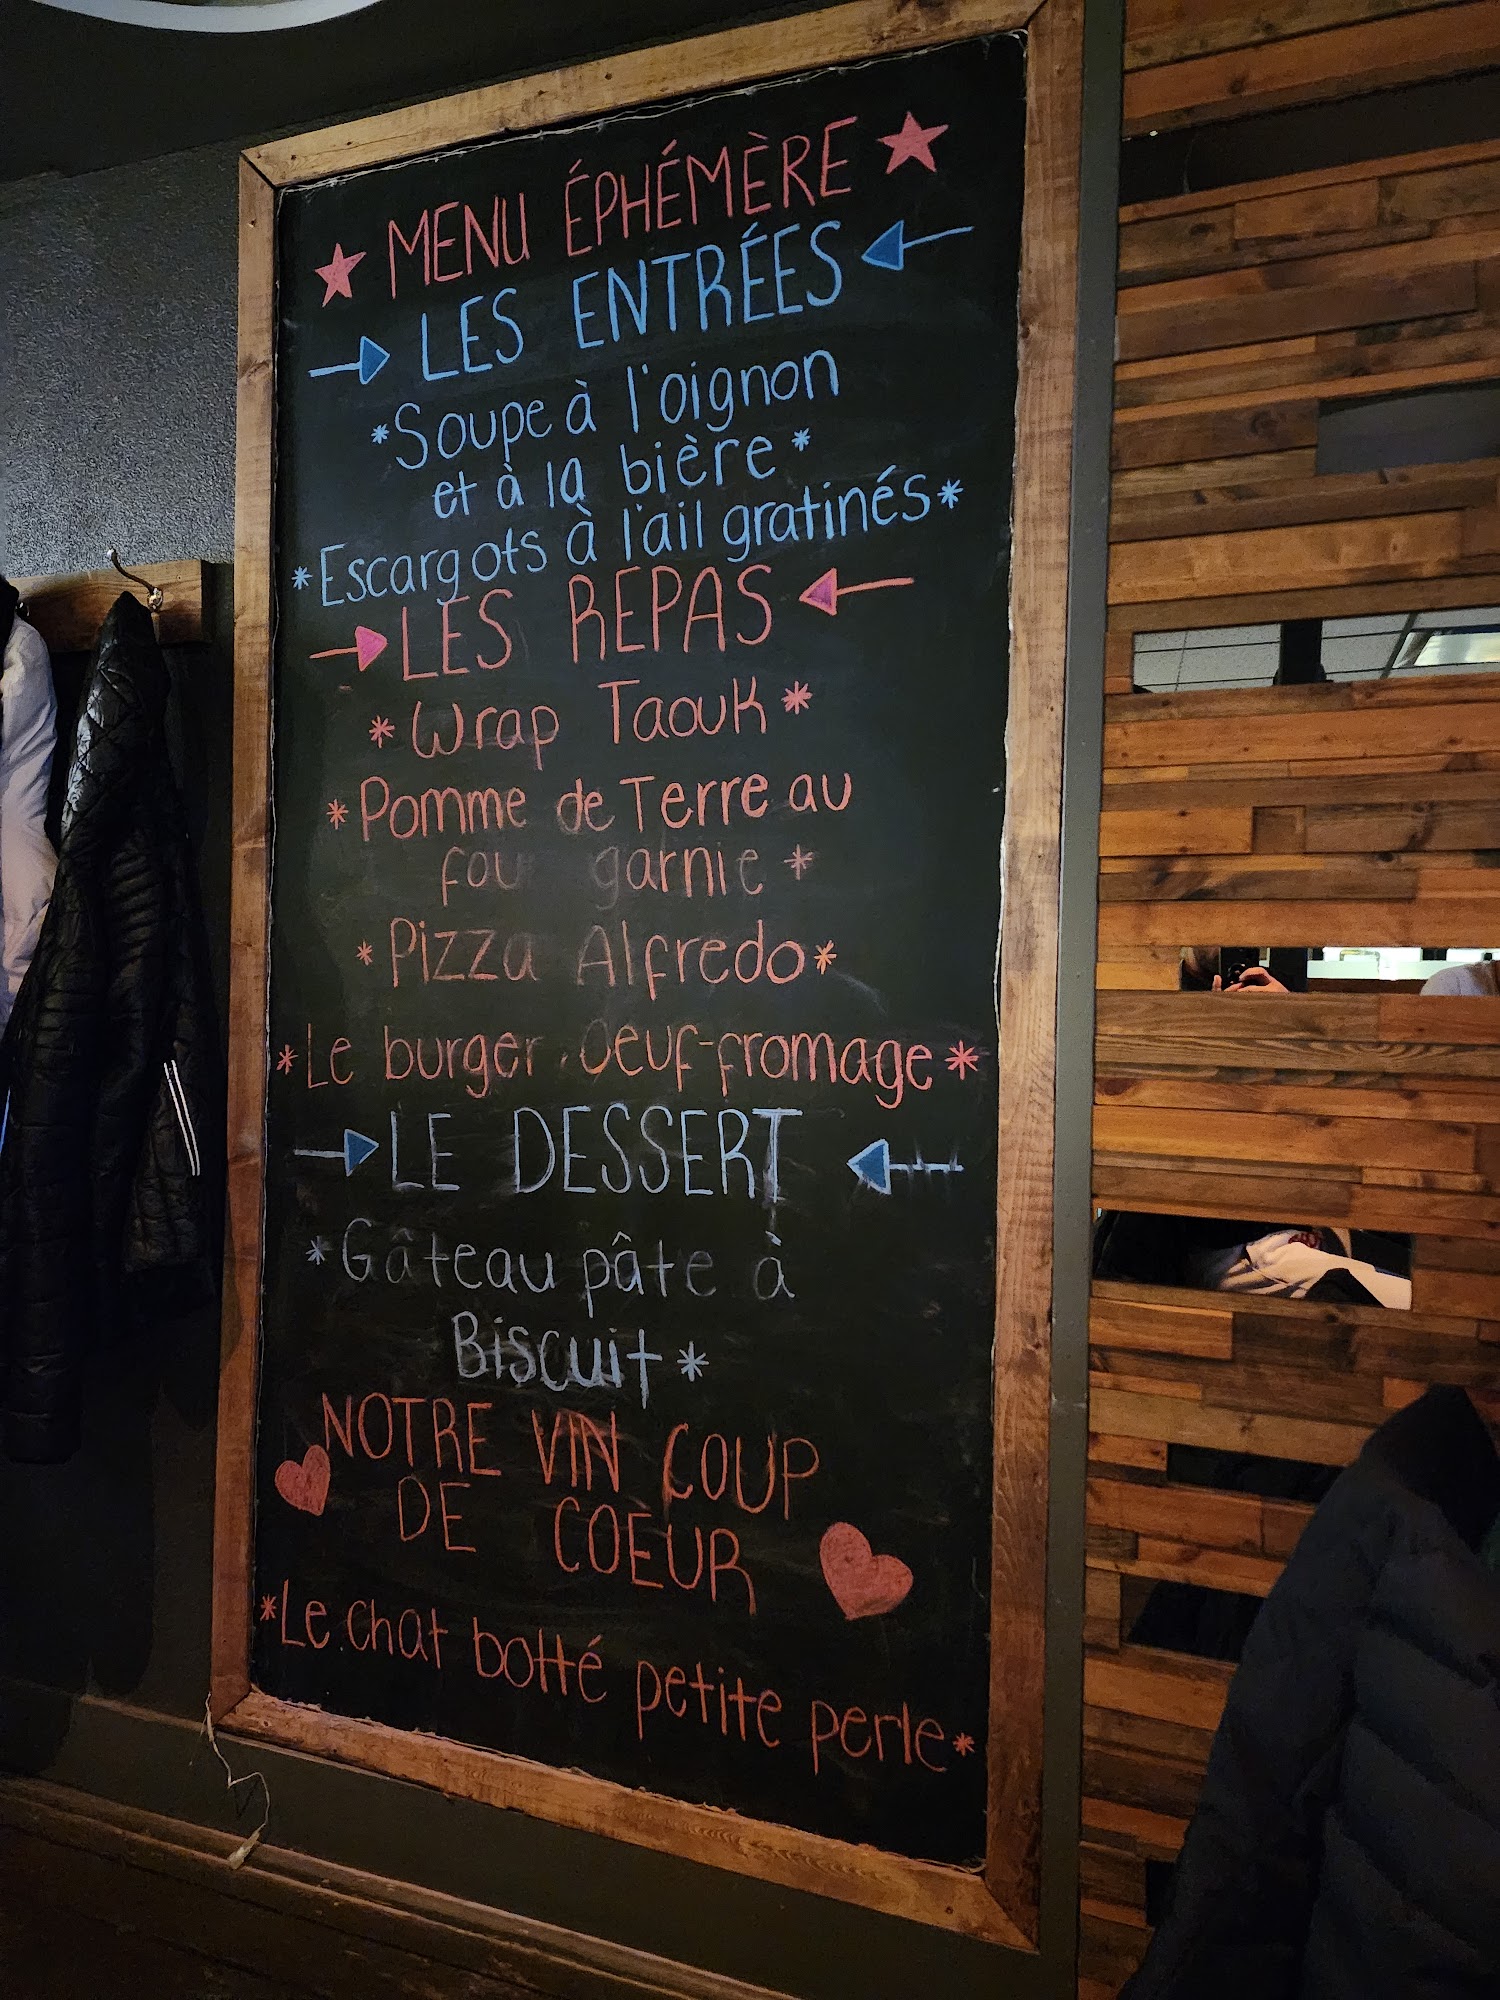 MENU ÉPHÉMÈRE
LES ENTRÉES
*Soupe à l'oignon
et à la bière*
*Escargots à l'ail gratinés*
LES REPAS
*Wrap Taouk*
*Pomme de Terre au
fou garnie*
*Pizza Alfredo*
*Le burger Oeuf-fromage*
LE DESSERT
*Gâteau pâte à
Biscuit*
NOTRE VIN COUP
DE COEUR
*Le chat botté petite perle*